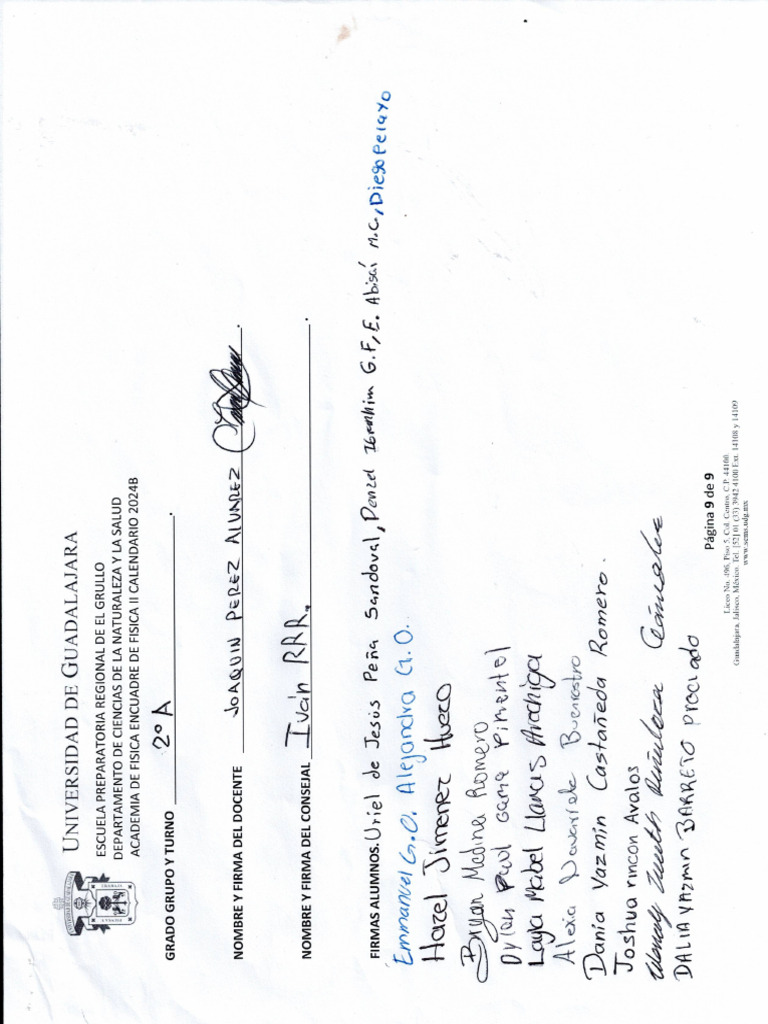 UNIVERSIDAD DE GUADALAJARA
ESCUELA PREPARATORIA REGIONAL DE EL GRULLO
DEPARTAMENTO DE CIENCIAS DE LA NATURALEZA Y LA SALUD
ACADEMIA DE FISICA ENCUADRE DE FISICA II CALENDARIO 2024B
GRADO GRUPO Y TURNO 2º A
NOMBRE Y FIRMA DEL DOCENTE JOAQUIN PEREZ ALVAREZ
NOMBRE Y FIRMA DEL CONSEJAL Iván RRR.
FIRMAS ALUMNOS. Uriel de Jesús Peña Sandoval, Denzel Ibrahim G.F, E. Abisaí M.C, Diego Pelayo
Emmanuel G.O. Alejandra G.O.
Hazel Jimenez Huezo
Bryan Medina Romero
Dylan Paul Pimentel
Layla Mabel Llamas Arechiga
Alexia Navarrete Buenrostro
Dania Yazmin Castañeda Romero.
Joshua rincon Avalos
DALIA YAZMIN BARRETO preciado
Página 9 de 9
Liceo No. 496, Piso 5, Col. Centro, C.P. 44100.
Guadalajara, Jalisco, México. Tel. [52] 01 (33) 3942 4100 Ext. 14108 y 14109
www.sems.udg.mx